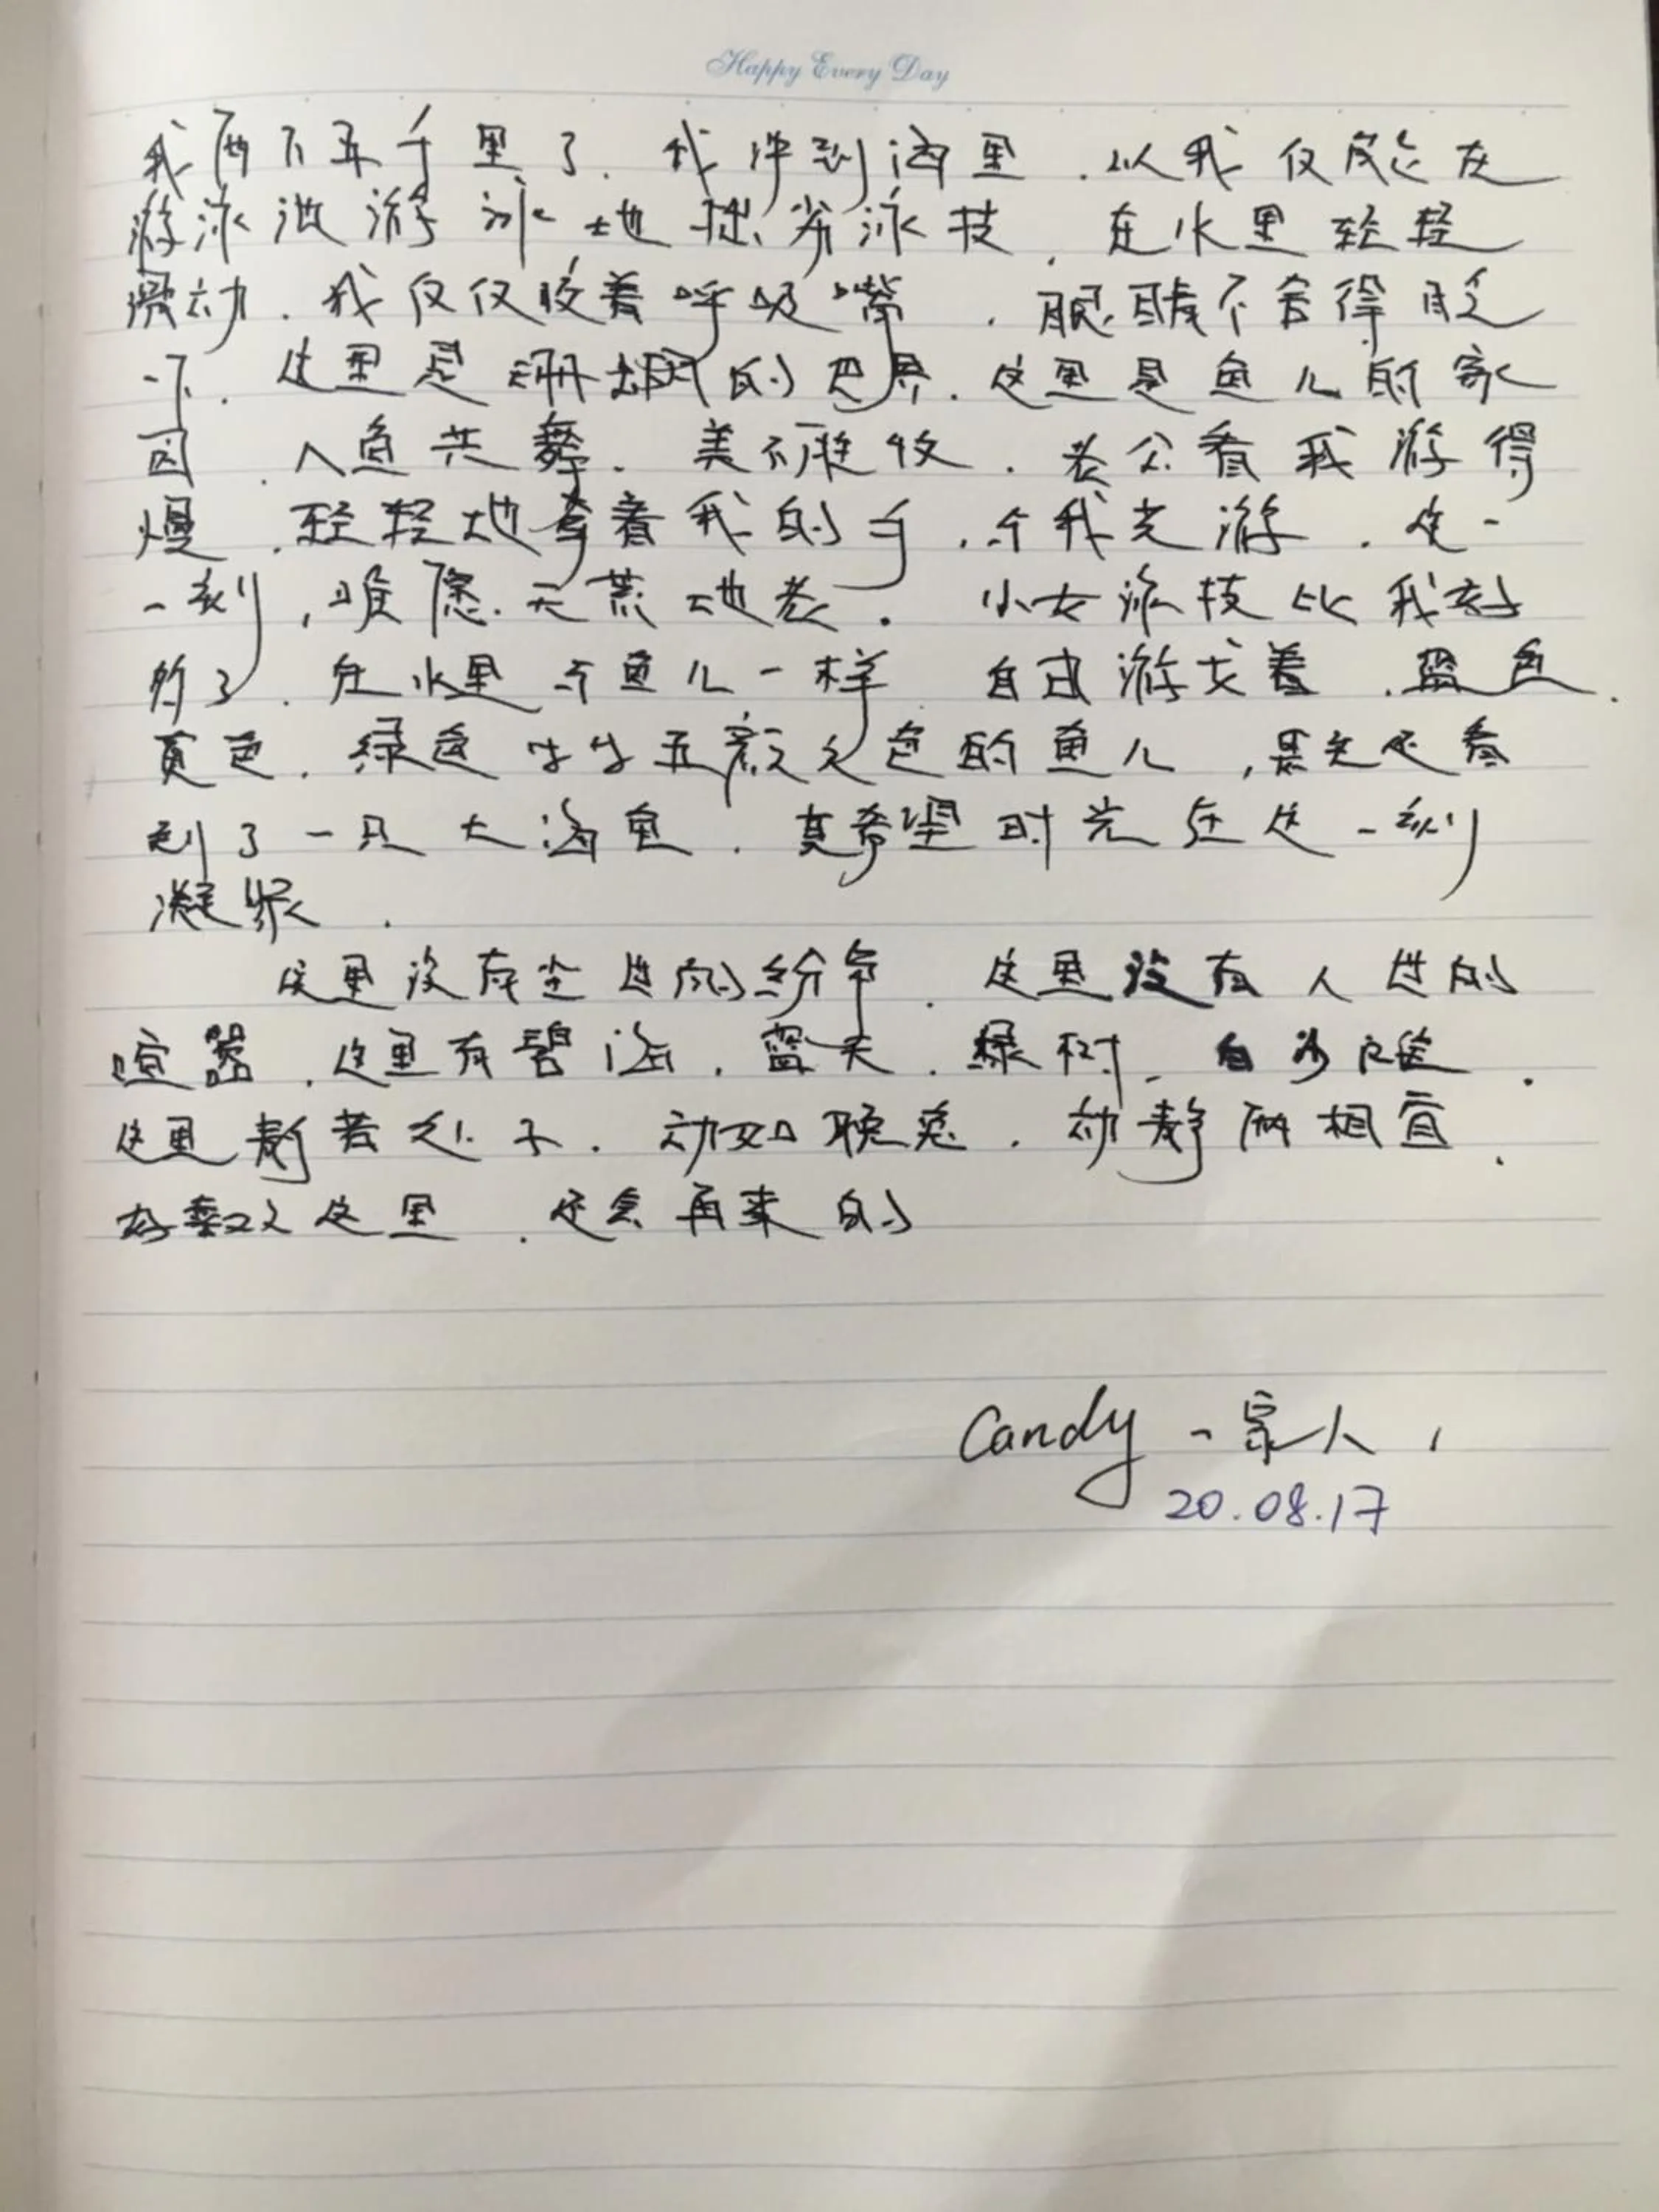 Happy Every Day
我再不弄千里了.我冲到海里.以我仅皮它在
游泳池游泳地拙劣泳技.在水里轻轻
滑动.我仅仅咬着呼吸嘴.眼睛不舍得眨
一下.这里是珊瑚的世界.这里是鱼儿的家
园.人鱼共舞.美不胜收.老公看我游得
慢.轻轻地牵着我的手.与我共游.这一
一刻,唯愿天荒地老.小女泳技比我好
的了.在水里与鱼儿一样 自由游弋着.蓝色.
黄色.绿色 牛牛五颜之色的鱼儿,居然还看
到了一只大海龟.真希望时光在这一刻
凝聚.
这里没有尘世的纷争.这里没有人世的
喧嚣.这里有碧海.蓝天.绿树.白沙滩.
这里静若处子.动如脱兔.动静两相宜.
好喜欢这里.还会再来的
Candy一家人,
20.08.17